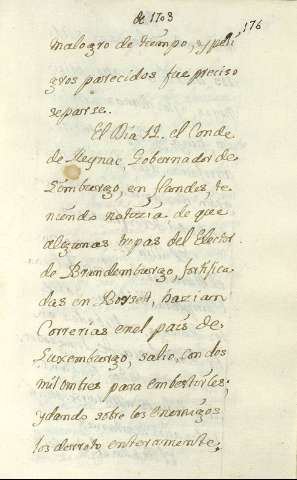 de 1703
176
malogro de tiempo, y peli
gros parecidos fue preciso
separse.
El Dia 12. el Conde
de Reynac, Gobernador de
Lomburgo, en flandes, te
niendo notozia de que
algunas tropas del Elector
de Brandemburgo, fortifica
das en Borsett, hazian
Correrias en el païs de
Luxemburgo, salio, con dos
mil ombres para embestirles;
y dando sobre los enemigos
los derroto enteramente;